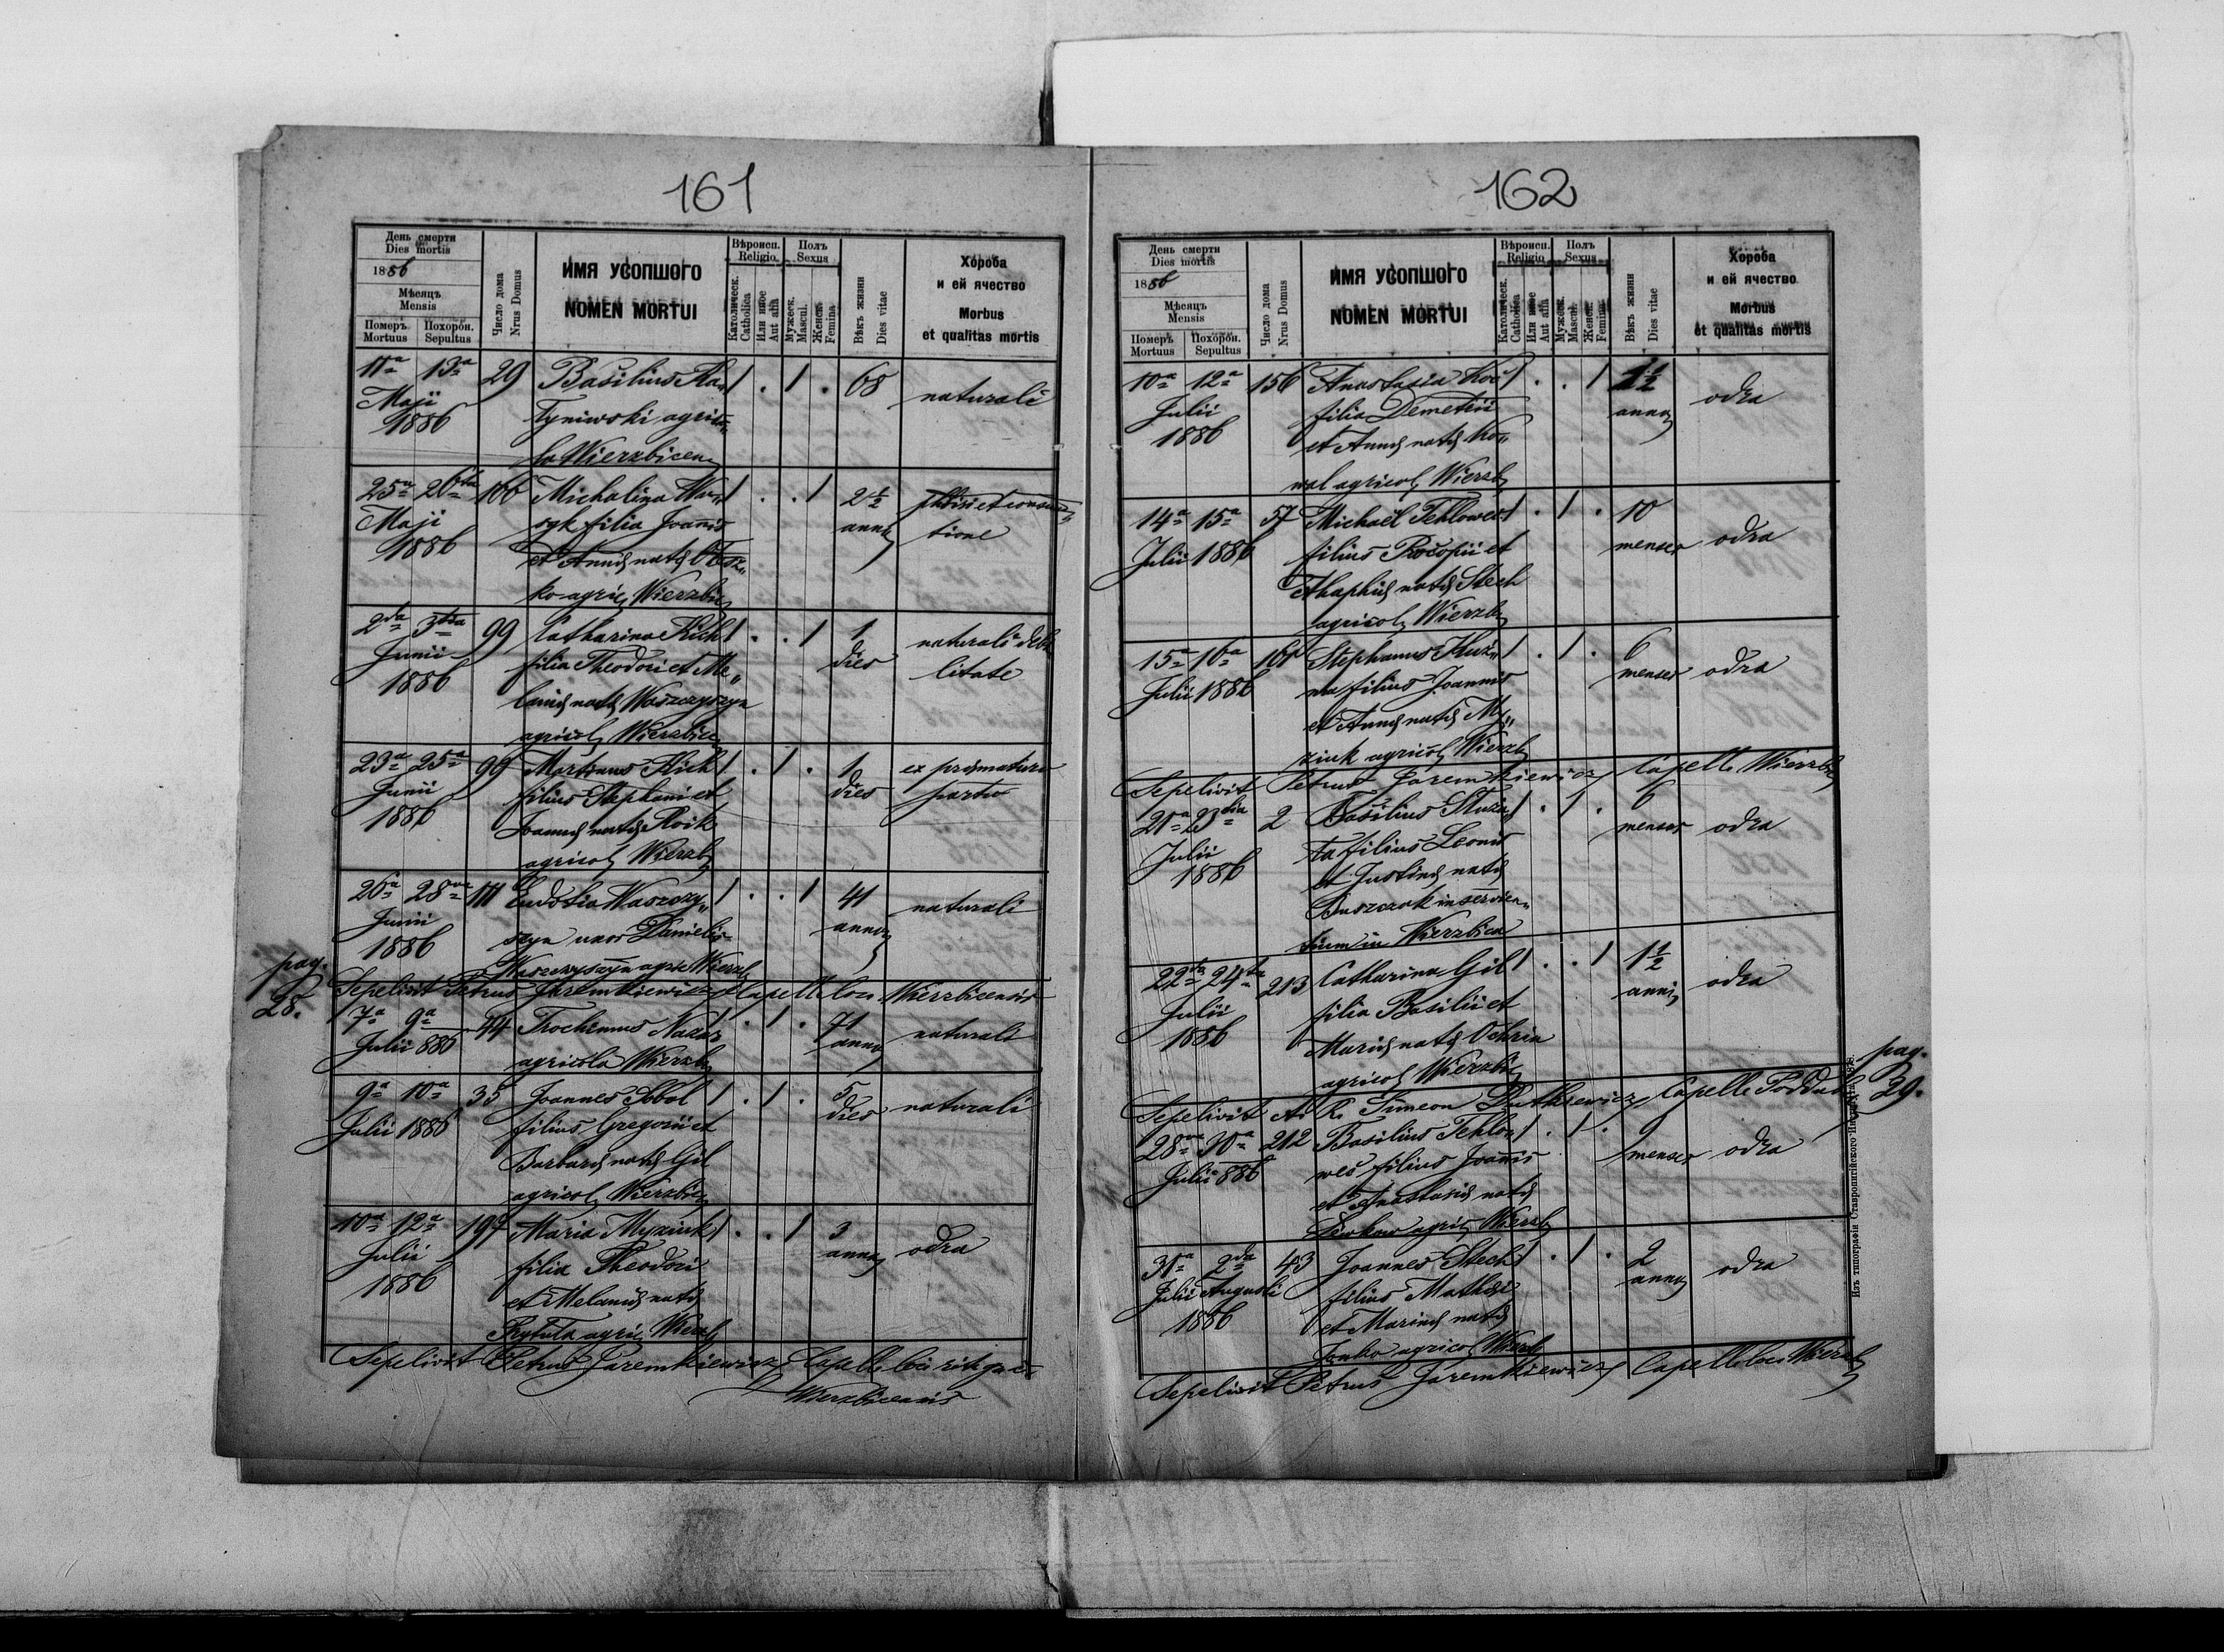 161
День смерти
Dies mortis
1886
Мѣсяцъ
Mensis
Померъ Похорон.
Mortuus Sepultus
Число дома
Nrus Domus
ИМЯ УСОПШОГО
NOMEN MORTUI
Вѣроисп.
Religio
Католическ.
Catholica
Или иное
Aut alia
Полъ
Sexus
Мужеск.
Mascul.
Женск.
Femina
Вѣкъ жизни
Dies vitae
Хороба
и ей ячество
Morbus
et qualitas mortis
11a 13a 29 Basilius 1 . 1 . 68 naturali
Maji
1886 agrico„
la Wierzbicen
25a 26ta 166 Michalina 1 . . 1 2 1/2 phtisi et
Maji filia Joannis anno tione
1886 et Annae natae
ko agric Wierzbic
2da 3tia 99 Catharina Kich 1 . . 1 1 naturali debi
Junii filia Theodori et Me„ dies litate
1886 laniae natae Waszczyszyn
agricol Wierzbic
23a 25a 99 Martinus Kich 1 . 1 . 1 ex praematuro
Junii filius Stephani et dies partu
1886 Joannae natae
agricol Wierzb
26a 28va 111 Eudokia Waszczy„ 1 . . 1 41 naturali
Junii szyn uxor Danielis anno
1886 Waszczyszyn agric Wierzb
pag.
28.
Sepelivit Petrus Jaremkiewicz Capell loci Wierzbicensis
7a 9a 44 Trochimus 1 . 1 . 71 naturali
Julii 886 agricola Wierzb anno
9a 10a 35 Joannes Sobol 1 . 1 . 5 naturali
Julii 1886 filius Gregorii et dies
Barbarae natae Gil
agricol Wierzbic
10a 12a 197 Maria Myziuk 1 . . 1 3 odra
Julii filia Theodori anno
1886 et Melaniae natae
Prytuła agric Wierzb
Sepelivit Petrus Jaremkiewicz Capell loci
Wierzbicensis
162
День смерти
Dies mortis
1886
Мѣсяцъ
Mensis
Померъ Похорон.
Mortuus Sepultus
Число дома
Nrus Domus
ИМЯ УСОПШОГО
NOMEN MORTUI
Вѣроисп.
Religio
Католическ.
Catholica
Или иное
Aut alia
Полъ
Sexus
Мужеск.
Mascul.
Женск.
Femina
Вѣкъ жизни
Dies vitae
Хороба
и ей ячество
Morbus
et qualitas mortis
10a 12a 156 Anastasia Koć 1 . . 1 1 1/2 odra
Julii filia Demetrii anno
1886 et Annae natae Ko„
wal agricol Wierzb
14a 15a 57 Michaël Tchlowes 1 . 1 . 10 odra
Julii 1886 filius Procopii et menses
Ahaphiae natae Stech
agricol Wierzb
15a 16a 161 Stephanus 1 . 1 . 6 odra
Julii 1886 filius Joannis menses
et Annae natae My„
ziuk agricol Wierzb
Sepelivit Petrus Jaremkiewicz Capell Wierzbic
21a 23tia 2 Basilius 1 . 1 . 6 odra
Julii ta filius Leonis menses
1886 et Justinae natae
Buszczak inservien„
tium in Wierzbica
22da 24ta 213 Catharina Gil 1 . . 1 1 1/2 odra
Julii filia Basilii et anni
1886 Mariae natae Ochrin
agricol Wierzbic
Sepelivit Simeon Dutkiewicz Capell
pag.
29.
28va 30a 212 Basilius Tchlo„ 1 . 1 . 9 odra
Julii 886 wes filius Joannis menses
et Anastasiae natae
agric Wierzb
31a 2da 43 Joannes Stech 1 . 1 . 2 odra
Julii Augusti filius Mathaei anno
1886 et Marinae natae
agricol Wierzb
Sepelivit Petrus Jaremkiewicz Capell loci Wierzb
Изъ типографіи Ставропигійского Института